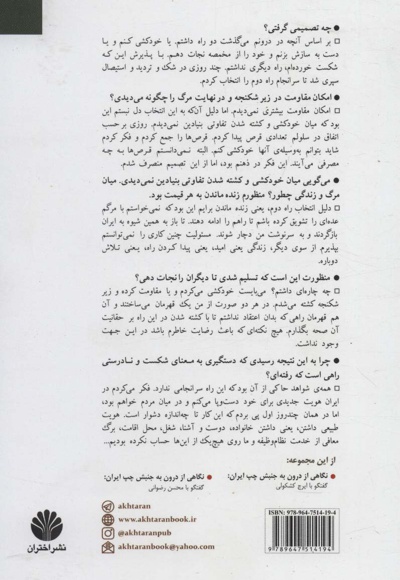 ● چه تصمیمی گرفتی؟
□ بر اساس آنچه در درونم می‌گذشت دو راه داشتم. یا خودکشی کنم و یا
دست به سازش بزنم و خود را از مخمصه نجات دهم. با پذیرش این که
شکست خورده‌ام، راه دیگری نداشتم. چند روزی در شک و تردید و استیصال
سپری شد تا سرانجام راه دوم را انتخاب کردم.
● امکان مقاومت در زیر شکنجه و در نهایت مرگ را چگونه می‌دیدی؟
□ امکان مقاومت بیشتری نمی‌دیدم. اما دلیل آن‌که به این انتخاب دل نبستم این
بود که میان خودکشی و کشته شدن تفاوتی بنیادین نمی‌دیدم. روزی برحسب
اتفاق در سلولم تعدادی قرص پیدا کردم. قرص‌ها را جمع کردم و فکر کردم
شاید بتوانم به‌وسیله‌ی آنها خودکشی کنم. البته نمی‌دانستم قرص‌ها به چه
مصرفی می‌آیند. این فکر در ذهنم بود، اما از این تصمیم منصرف شدم.
● می‌گویی میان خودکشی و کشته شدن تفاوتی بنیادین نمی‌دیدی. میان
مرگ و زندگی چطور؟ منظورم زنده ماندن به هر قیمت بود.
□ دلیل انتخاب راه دوم، یعنی زنده ماندن برایم این بود که نمی‌خواستم با مرگم
عده‌ای را تشویق کرده باشم تا راهم را ادامه دهند. تا باز به همین شیوه به ایران
بازگردند و به سرنوشت من دچار شوند. مسئولیت چنین کاری را نمی‌توانستم
بپذیرم از سوی دیگر، زندگی یعنی امید، یعنی پیدا کردن راه، یعنی تلاش
دوباره.
● منظورت این است که تسلیم شدی تا دیگران را نجات دهی؟
□ چه چاره‌ای داشتم؟ می‌بایست خودکشی می‌کردم و یا مقاومت کرده و زیر
شکنجه کشته می‌شدم. در هر دو صورت از من یک قهرمان می‌ساختند و آن
هم قهرمان راهی که بدان اعتقاد نداشتم تا با کشته شدن در این راه بر حقانیت
آن صحه بگذارم. هیچ نکته‌ای که باعث رضایت خاطرم باشد در این جهت
وجود نداشت.
● چرا به این نتیجه رسیدی که دستگیری به معنای شکست و نادرستی
راهی است که رفته‌ای؟
□ همه‌ی شواهد حاکی از آن بود که این راه سرانجامی ندارد. فکر می‌کردم در
ایران هویت جدیدی برای خود دست‌وپا می‌کنم و در میان مردم خواهم بود،
اما در همان چندروز اول پی بردم که این کار تا چه‌اندازه دشوار است. هویت
طبیعی داشتن، یعنی داشتن خانواده، دوست و آشنا، شغل، محل اقامت، برگ
معافی از خدمت نظام‌وظیفه و ما روی هیچ‌یک از این‌ها حساب نکرده بودیم...
از این مجموعه:
● نگاهی از درون به جنبش چپ ایران:
گفتگو با ایرج کشکولی
● نگاهی از درون به جنبش چپ ایران:
گفتگو با محسن رضوانی
akhtaran
www.akhtaranbook.ir
@akhtaranpub
akhtaranbook@yahoo.com
ISBN: 978-964-7514-19-4
9 789647 514194
نشر اختران